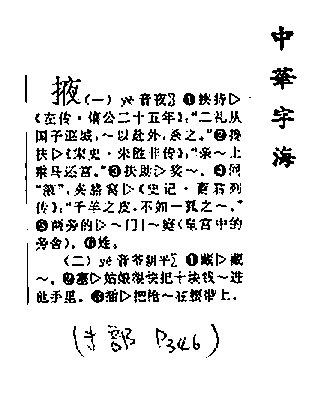 中華字海
掖(一) yè 音夜〗❶扶持▷
《左传·僖公二十五年》:"二礼从
国子巡城,~以赴外,杀之。"❷搀
扶▷《宋史·朱胜非传》:"亲~上
乘马还宫。"❸扶助▷奖~。❹同
"腋",夹肢窝▷《史记·商君列
传》:"千羊之皮,不如一狐之~。"
❺两旁的▷~门|~庭(皇宫中的
旁舍)。❻姓。
(二) yē 音爷阴平〗❶藏▷藏
~。❷塞▷姑娘很快把十块钱~进
他手里。❸插▷把枪~在腰带上.
(扌部 P346)